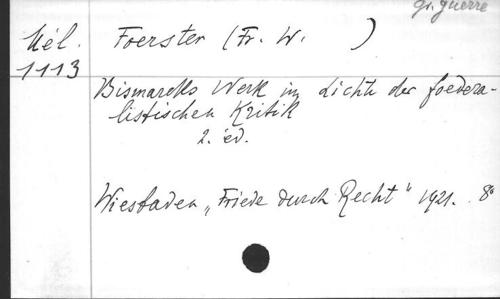 gr. guerre
Mél. Foerster (Fr. W. )
1113
Bismarcks Werk im Lichte der foedera-
listischen Kritik
2. éd.
Wiesbaden „Friede durch Recht" 1921. 8°